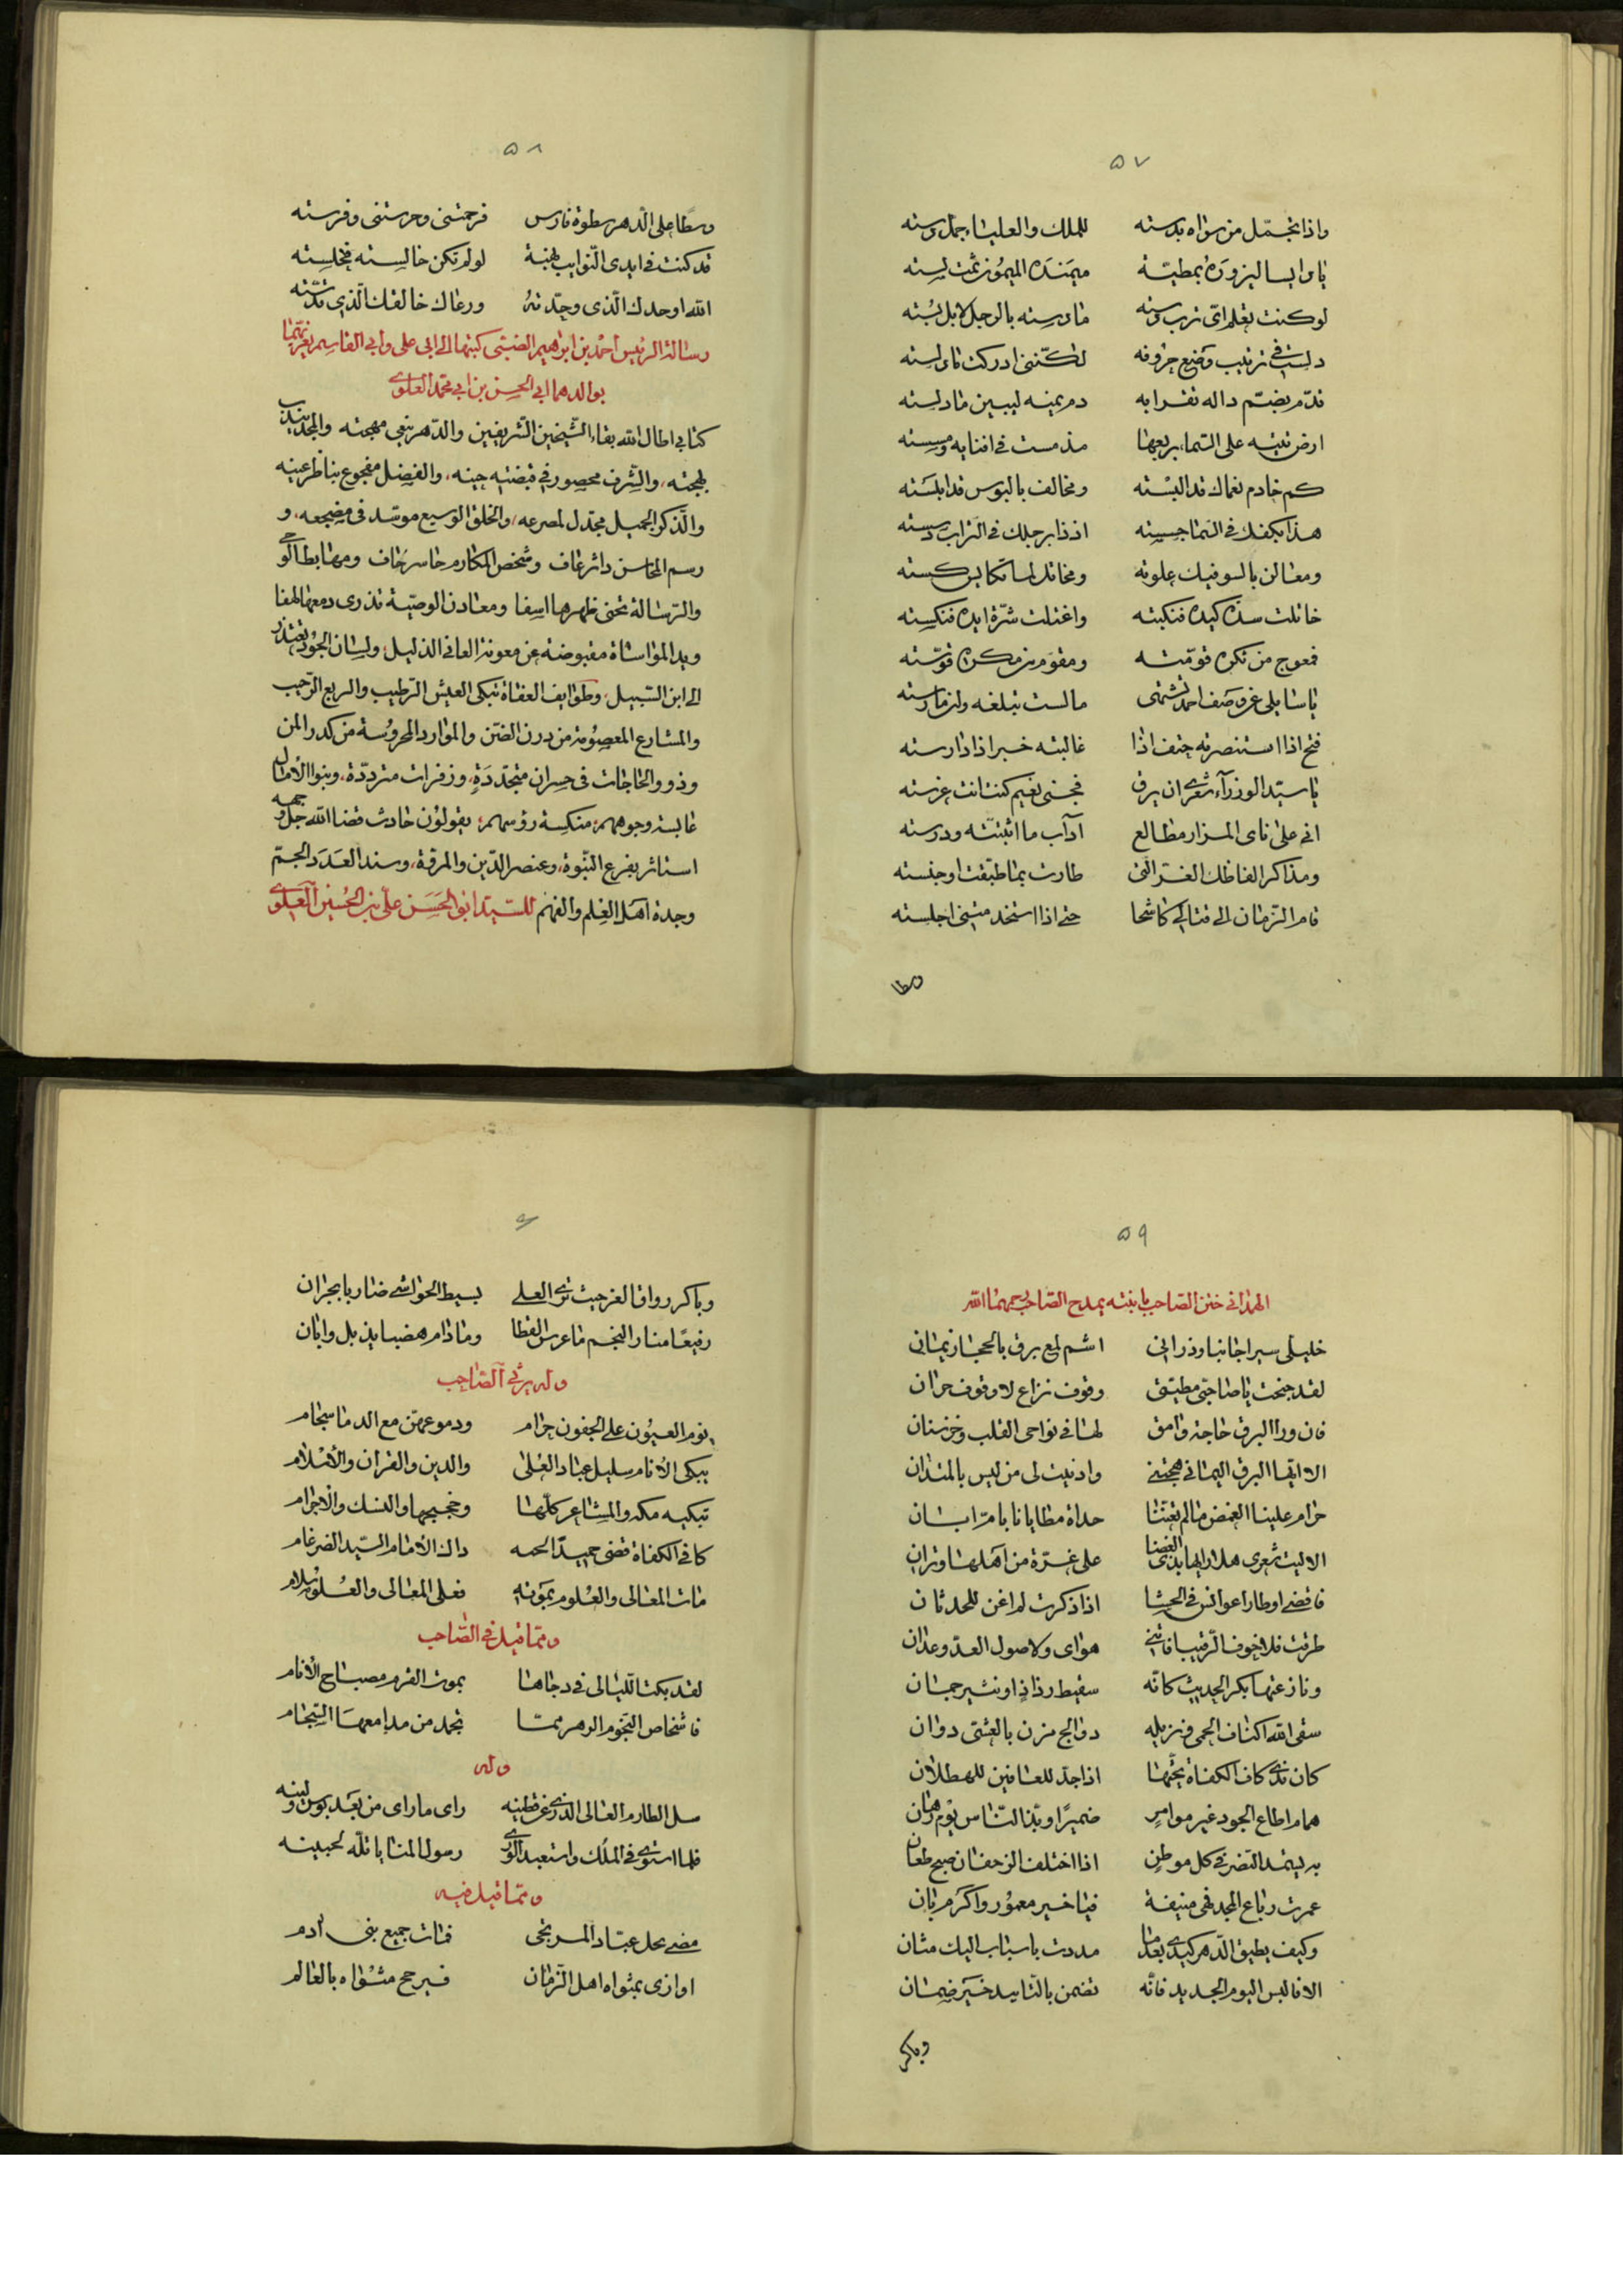 ٥٧
واذا تجمّل من سواه بدسته للملك والعلياء جمل دسته
يا دابسا ليزوره بمطيّة ميمنه الميمون ثمت لسته
لو كنت تعلم اى ترب دسته ما دسته بالرجل لا بل بُسته
دلست في ترتيب وضع حروفه لكنّنى ادركت ما دلسته
قدّم بضمّ داله تقرا به دم يمنه ليبين ما دلسته
ارض تتيه على السماء بربعها مذ مست في افنايه ومسسته
كم خادم نعماك قد البسْته ومخالف بالبوس قد ابلسته
هذا بكفك في السما جسسته اذ ذا برجلك في التراب دسسته
ومعالن بالسوفيك علوته ومخاتل لما تكايس كسته
خاتلت سدّه كيده فنكبته واغتلت شرّة ايده فنكسته
فمعوج من نكره قوّمته ومقوم من مكره قوّسته
يا سايلى عن وصف احمد تشتهى ما لست تبلغه ولن مارسته
فتح اذا استنصرته حتف اذا غالبته خبر اذا دارسته
يا سيّد الوزرآء شعرى ان يرق فجنى نعيم كنت انت غرسته
انى على ناى المزار مطالع ادآب ما اثبتّته ودرسته
ومذاكر الفاظك الغر الّتى طارت بما طبّقت او جنسته
قام الزمان الى قتالى كاشحا حتى اذا استخد متنى اجلسته
وسطا
٥٨
وسطا على الدهر سطوة فارس فرحمتنى وحرستنى وفرسته
قد كنت في ايدى النّوايب نهبة لو لم تكن خالسته فخلسته
الله اوحدك الّذى وحّدته ورعاك خالقك الّذى قدّسته
رسالة الرئيس احمد بن ابراهيم الضبتى كتبها الى ابى على وابى القاسم يعزيهما
بوالدهما ابى الحسن بن ابى محمد العلوى
كتابى اطال الله بقاء الشّيخين الشّريفين والدّهر ينعى مهجته والمجد يندب
بهجته، والشّرف محصور في قبضتيه حينه، والفضل مفجوع بناظر عينه
والّذكر الجميل مجدّل لمصرعه، والخلق الوسيع موسّد في مضجعه، و
رسم المحاسن داثر عاف وشخص المكارم حاسر حاف ومهابط الوحى
والرّسالة تحنى ظهرها اسفا ومعادن الوصيّة تذرى دمعها لهفا
ويد المواساة مقبوضة عن معونة العانى الذليل، ولسان الجود يعتذر
الى ابن السّبيل، وطوايف العفاة تبكى العيش الرّطيب والربع الرّحيب
والمشارع المعصومة من درن الفتن والموارد المحروسة من كدر المن
وذوو الحاجات في حسران متجدّدة، وزفرات متردّدة، وبنو الامال
عابسة وجوههم؛ منكسة رؤسهم؛ يقولون حادث قضا الله جل وجهه
استاثر بفرع النّبوة، وعنصر الدّين والمرقة، وسند العدد الجمّ
وجدة اهل العلم والفهم للسّيّد ابو الحسن على بن الحسين العلوى
٥٩
الهمدانى ختن الصاحب بابنته يمدح الصّاحب رحمهما الله
خليلى سيرا جانبا وذرانى اشم لمع برق بالحجاز يمانى
لقد جنحت يا صاحبى مطيّتى وقوف نزاع لا وقوف حران
فان ورا البرق حاجة وامق لها في نواحى القلب وخز سنان
الا ايّها البرق اليمانى هجتنى وادنيت لى من ليس بالمتدان
حرام علينا الغمض ما لم تغننا حداة مطايانا بام ابان
الا ليت شعرى هل ارانا بذى الغضا على غرّة من اهلها وتران
فاقضى اوطارا عوانس في الحشا اذا ذكرت لم اغن للحدثان
طرقت فلا خوف الرّقيب فاتنى هواى ولا صول العدّ وعدان
ونازعتها بكر الحديث كانّه سقيط رذاذ او نثير جمان
سقى الله اكناف الحمى من نزيله دوالح مزن بالعشى دوان
كان ندى كاف الكفاة يحثّها اذا جد للعافين للهطلان
همام اطاع الجود غير موامر ضميرًا وبذّ النّاس يوم رهان
به ليشد النصر في كل موطن اذا اختلف الزحفان صبح طعان
عمرت رباع المجد فهى منيفة فيا خير معمور واكرم بان
وكيف يطيق الدهر كيدى بعدما مددت باسباب اليك مثان
الا فالبس اليوم الجديد فانّه تضمن بالتاييد خير ضمان
وباكر
٦٠
وباكر رواق العز حيث ترى العلى بسيط الحواشى ضاربا بجران
رفيعًا منار النجم ما عرس القطا وما دام هضبا يذبل وابان
وله يرثى الصّاحب
نوم العيون على الجفون حرام ودموعهنّ مع الدما سجام
يبكى الانام سليل عبّاد العلى والدين والقران والاسلام
تبكيه مكه والمشاعر كلّها وحجيجها والنسك والاحرام
كافى الكفاة قضى حميدا نحبه ذاك الامام السّيد الضرغام
مات المعالى والعلوم بموته فعلى المعالى والعلوم سلام
ومما قيل في الصّاحب
لقد بكت اللّيالى في دجاها بموت القرم مصباح الانام
فاشخاص النّجوم الزهر ممّا تجمد من مدامعها السّجام
وله
سل الطارم العالى الذرى عن قطينه راى ما راى من بعد بوس ولينه
فلما استوى في الملك واستعبد الورى رسول المنايا تلّه لجبينه
ومما قيل فيه
مضى نجل عبّاد المرتجى فمات جميع بنى ادم
اوازى بمثواه اهل الزّمان فيرجح مثواه بالعالم